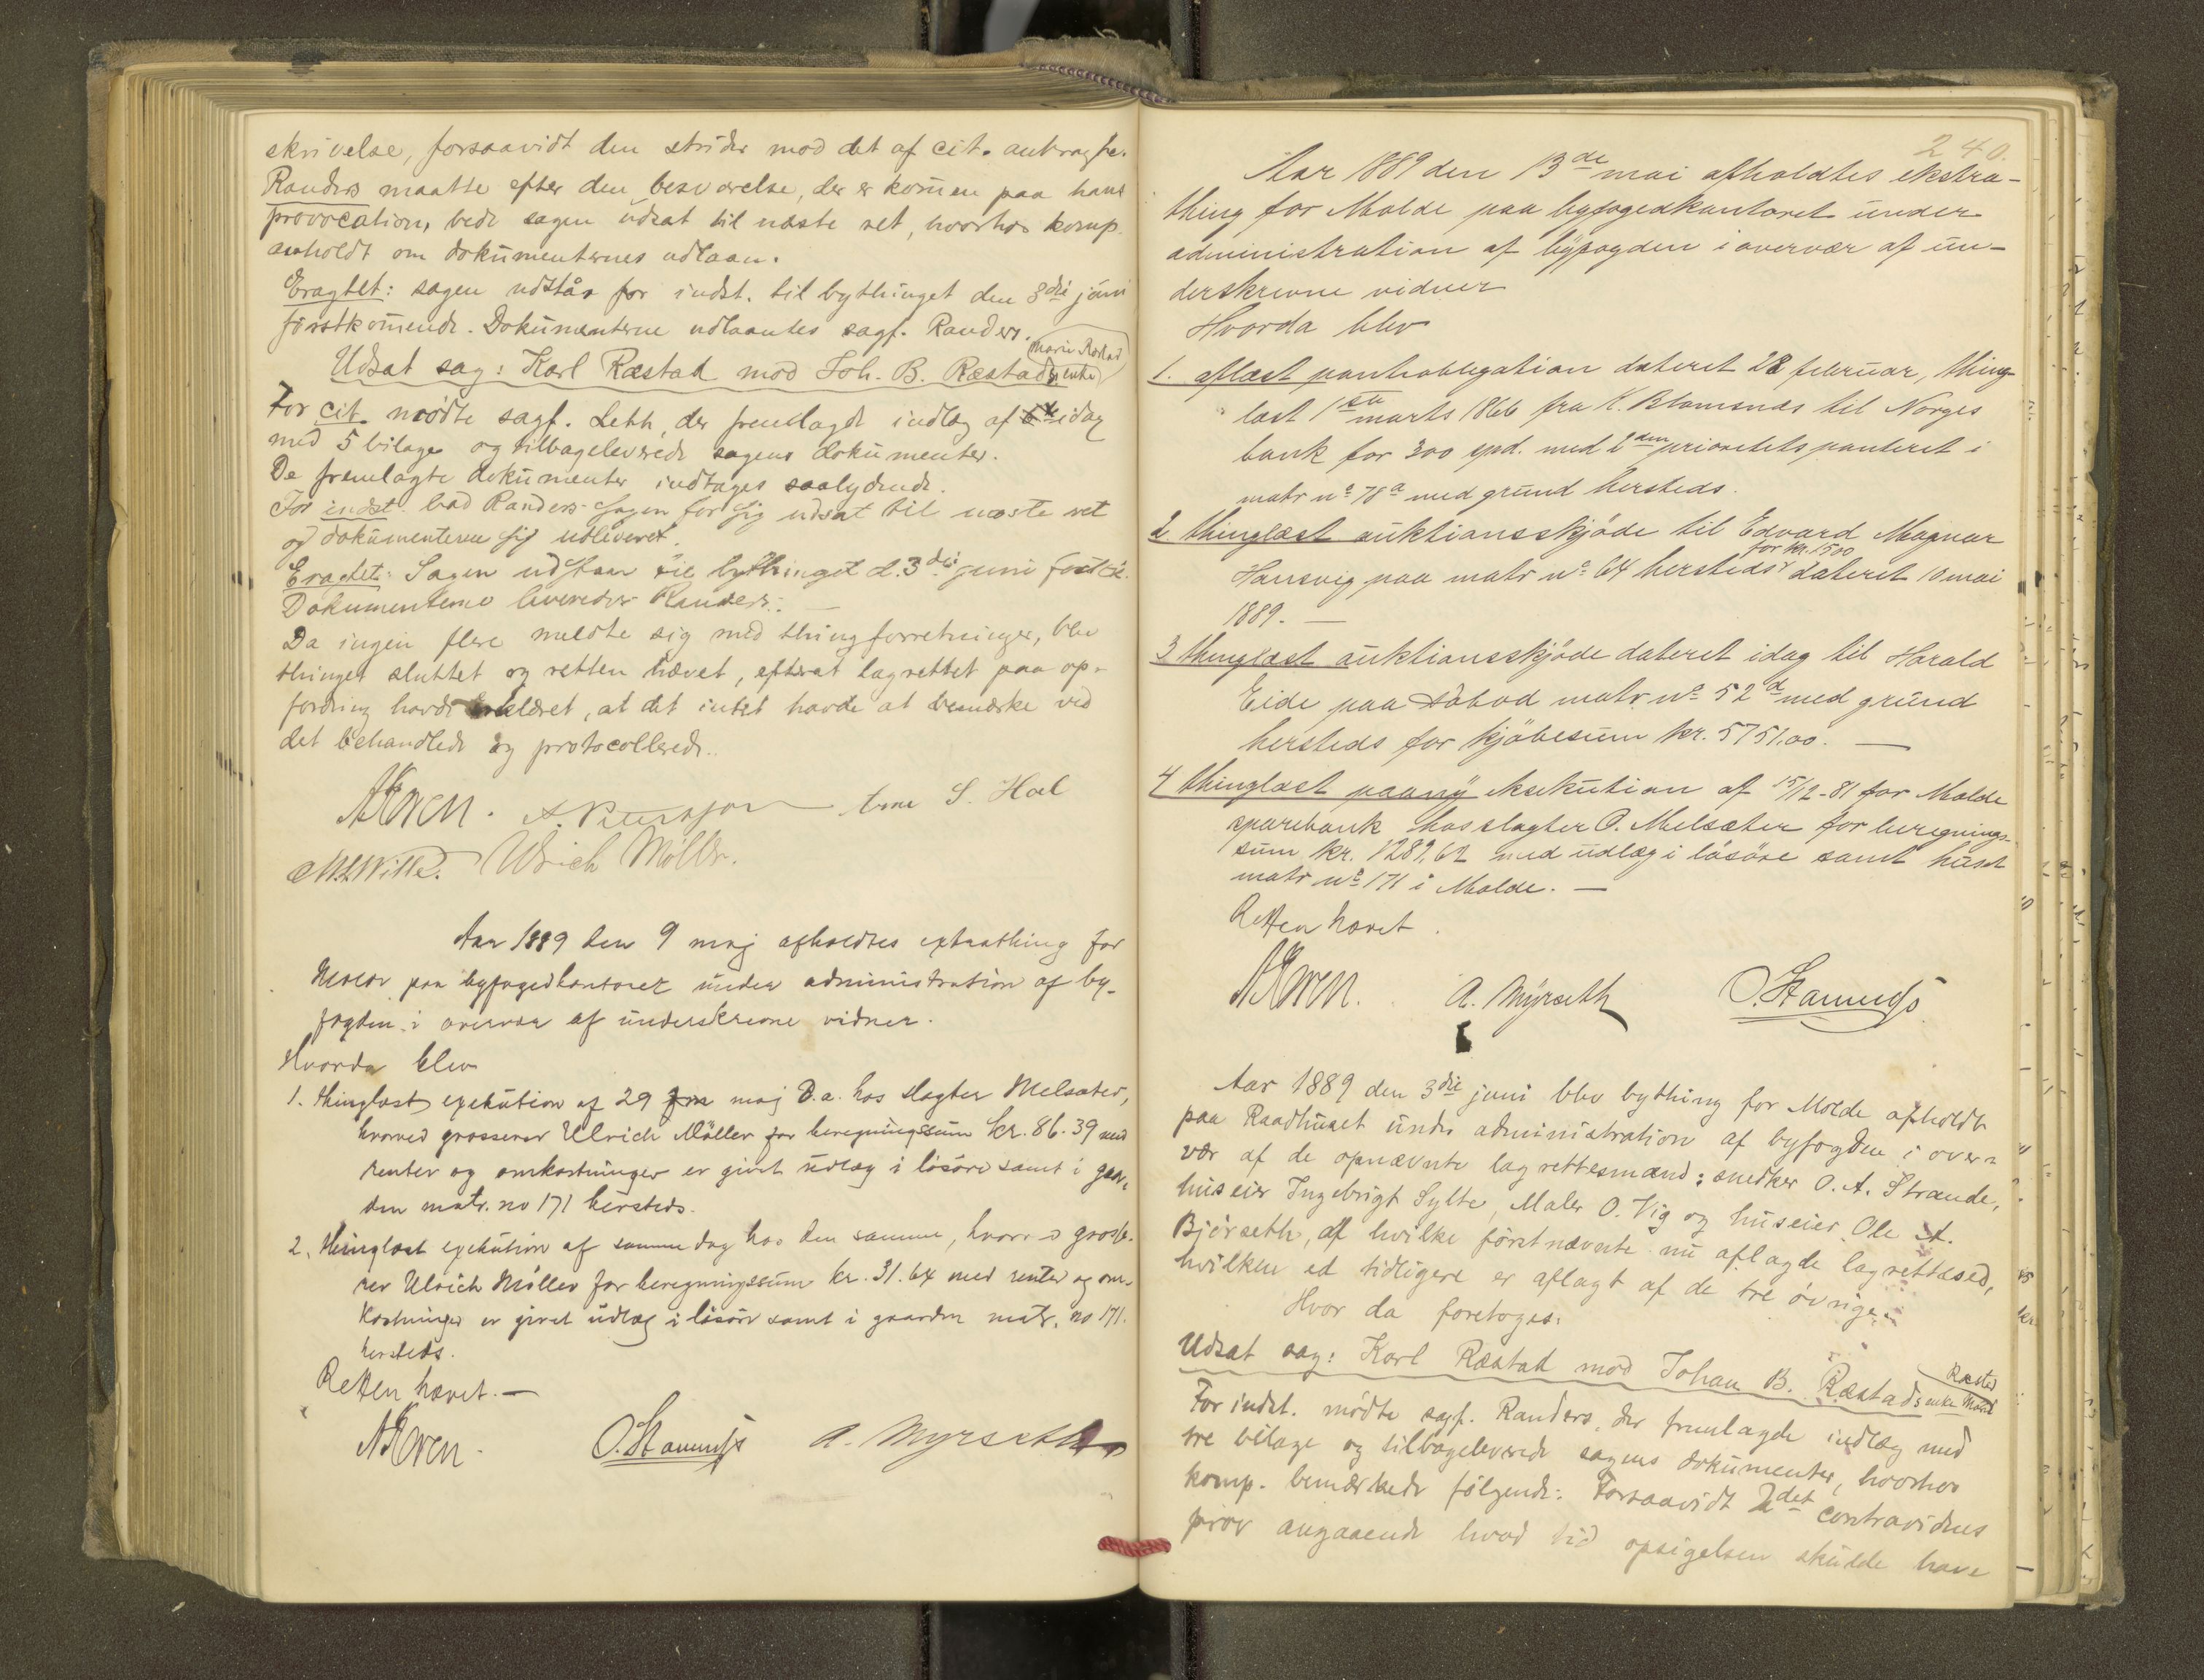 skrivelse, forsaavidt den strider mod det af cit. antragne.
Randers maatte efter den besvarelse, der er kommen paa hans
provocation, bede sagen udsat til næste ret, hvorhos komp.
anholdt om dokumenternes udlaan.
Eragtet: sagen udstår for indst. til bythinget den 3die juni
førstkommende. Dokumenterne udlaantes sagf. Randers.
Udsat sag: Karl Ræstad mod Joh. B. Ræstads enke Marie Ræstad
For cit. mødte sagf. Leth, der fremlagde indlæg af idag
med 5 bilage og tilbageleverede sagens dokumenter.
De fremlagte dokumenter indtages saalydende.
For indst. bad Randers Sagen for sig udsat til næste ret
og dokumenterne sig udleveret.
Eragtet: Sagen udstaar til bythinget d. 3die juni
Dokumenterne leveredes Randers. —
Da ingen flere meldte sig med thingforretninger, blev
thinget sluttet og retten hævet, efterat lagrettet paa op-
fordring havde erklæret, at det intet havde at bemærke ved
det behandlede og protocollerede.
Arne S. Hoel
Ulrich Møller.
Aar 1889 den 9 maj afholdtes extrathing for
Molde paa byfogedkontoret under administration af by-
fogden i overvær af underskrevne vidner.
Hvorda blev
1. thinglæst exekution af 29 maj d.a. hos slagter Melsæter,
hvorved grosserer Ulrich Møller for beregningssum kr. 86.39 med
renter og omkostninger er givet udlæg i løsøre samt i gaar-
den matr. no 171 hersteds.
2. thinglæst exekution af samme dag hos den samme, hvorved grosse-
rer Ulrich Møller for beregningssum kr. 31.64 med renter og om-
kostninger er givet udlæg i løsøre samt i gaarden matr. no 171.
hersteds.
Retten hævet. —
A. Myrseth
240.
Aar 1889 den 13de mai afholdtes ekstra-
thing for Molde paa byfogedkontoret under
administration af byfogden i overvær af un-
derskrevne vidner
Hvorda blev
1. aflæst pantobligation dateret 28 februar, thing-
læst 1ste marts 1866 fra K. Blomsnes til Norges
bank for 300 spd. med 2den prioritets panteret i
matr no 78a med grund hersteds.
2. thinglæst auktionsskjøde til Edvard Magnar
Hansvig paa matr no 64 hersteds for kr. 1500 dateret 10 mai
1889. —
3 thinglæst auktionsskjøde dateret idag til Harald
Eide paa søbod matr no 52d med grund
hersteds for kjøbesum kr. 5751.00. —
4 thinglæst paany eksekution af 15/12-81 for Molde
sparebank hos slagter O. Melsæter for beregnings-
sum kr. 1289,62 med udlæg i løsøre samt huset
matr no 171 i Molde. —
Retten hævet.
A. Myrseth
Aar 1889 den 3die juni blev bything for Molde afholdt
paa Raadhuset under administration af byfogden i over-
vær af de opnævnte lagrettesmænd: snedker O. A. Strande,
huseier Ingebrigt Sylte, Maler O. Vig og huseier Ole A.
Bjørseth, af hvilke førstnævnte nu aflagde lagrettesed,
hvilken ed tidligere er aflagt af de tre øvrige.
Hvor da foretoges:
Udsat sag: Karl Ræstad mod Johan B. Ræstads enke Marie Ræstad
For indst. mødte sagf. Randers, der fremlagde indlæg med
tre bilage og tilbageleverede sagens dokumenter, hvorhos
komp. bemærkede følgende: Forsaavidt 2det contravidnes
prov angaaende hvad tid opsigelsen skulde have